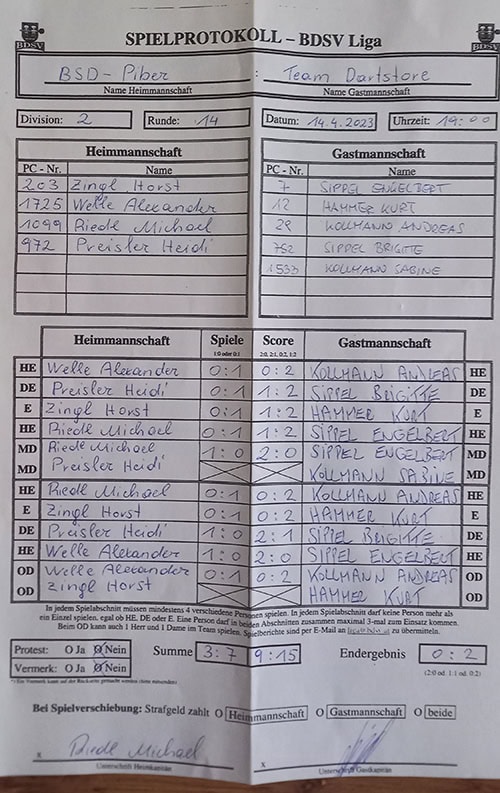 BDSV SPIELPROTOKOLL – BDSV Liga BDSV
BSD - Piber : Team Dartstore
Name Heimmannschaft Name Gastmannschaft
Division: 2 Runde: 14 Datum: 14.4.2023 Uhrzeit: 19:00
Heimmannschaft Gastmannschaft
PC - Nr. Name PC - Nr. Name
203 Zingl Horst 7 SIPPEL ENGELBERT
1725 Welle Alexander 12 HAMMER KURT
1099 Riedl Michael 29 KOLLMANN ANDREAS
972 Preisler Heidi 752 SIPPEL BRIGITTE
1533 KOLLMANN SABINE
Heimmannschaft Spiele Score Gastmannschaft
1:0 oder 0:1 2:0, 2:1, 0:2, 1:2
HE Welle Alexander 0:1 0:2 KOLLMANN ANDREAS HE
DE Preisler Heidi 0:1 1:2 SIPPEL BRIGITTE DE
E Zingl Horst 0:1 1:2 HAMMER KURT E
HE Riedl Michael 0:1 1:2 SIPPEL ENGELBERT HE
MD Riedl Michael 1:0 2:0 SIPPEL ENGELBERT MD
MD Preisler Heidi KOLLMANN SABINE MD
HE Riedl Michael 0:1 0:2 KOLLMANN ANDREAS HE
E Zingl Horst 0:1 0:2 HAMMER KURT E
DE Preisler Heidi 1:0 2:1 SIPPEL BRIGITTE DE
HE Welle Alexander 1:0 2:0 SIPPEL ENGELBERT HE
OD Welle Alexander 0:1 0:2 KOLLMANN ANDREAS OD
OD Zingl Horst HAMMER KURT OD
In jedem Spielabschnitt müssen mindestens 4 verschiedene Personen spielen. In jedem Spielabschnitt darf keine Person mehr als
ein Einzel spielen, egal ob HE, DE oder E. Eine Person darf in beiden Abschnitten zusammen maximal 3-mal zum Einsatz kommen.
Beim OD kann auch 1 Herr und 1 Dame im Team spielen. Spielberichte sind per E-Mail an liga@bdsv.at zu übermitteln.
Protest: O Ja O Nein Summe 3:7 9:15 Endergebnis 0:2
Vermerk: O Ja O Nein (2:0 od. 1:1 od. 0:2)
Bei Spielverschiebung: Strafgeld zahlt O Heimmannschaft O Gastmannschaft O beide
x Riedl Michael x
Unterschrift Heimkapitän Unterschrift Gastkapitän